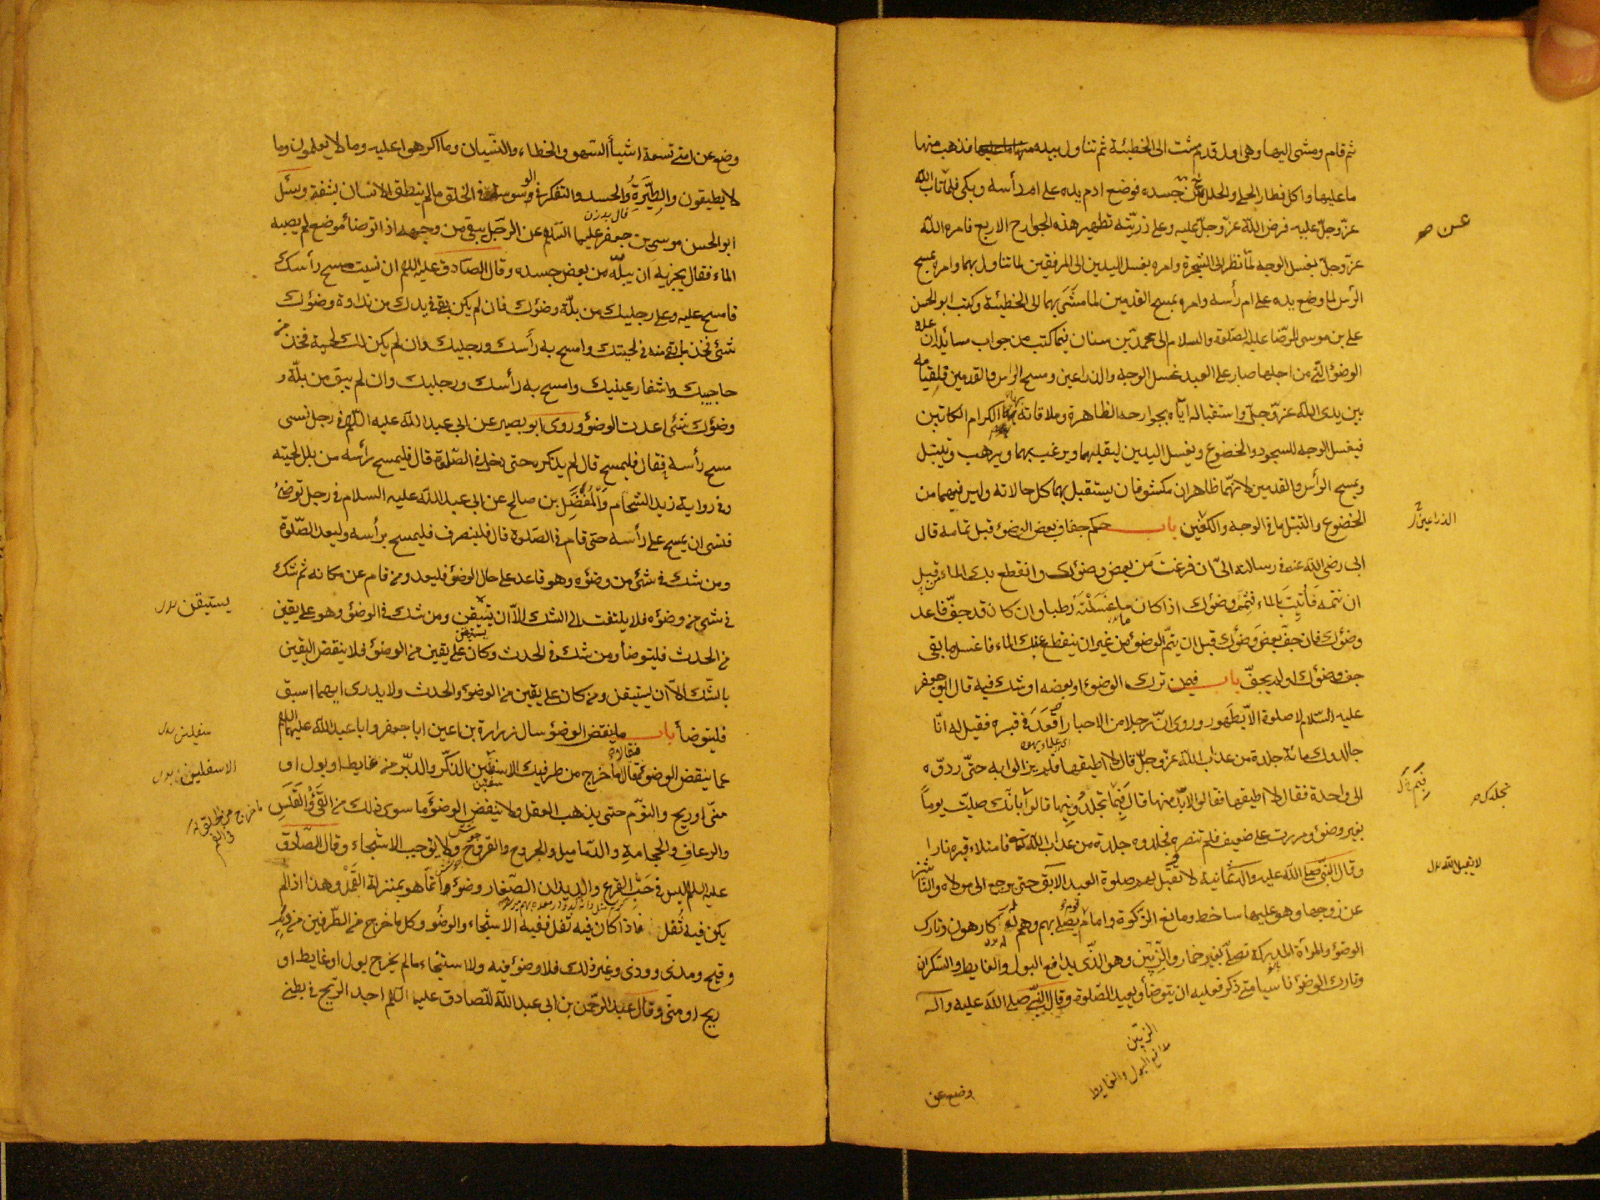 ثم قام ومشى اليها وهى اول قدم مشت الى الخطيئة ثم تناول بيده منها فذهب منها
ما عليها واكل فطار الحلى والحلل عن جسده فوضع ادم يده على ام رأسه وبكى فلما تاب الله
عز وجل عليه فرض الله عز وجل عليه وعلى ذريته تطهير هذه الجوارح الاربع فامره الله
عز وجل بغسل الوجه لما نظر الى الشجرة وامره بغسل اليدين الى المرفقين لما تناول بهما وامره بمسح
الرأس لما وضع يده على ام رأسه وامره بمسح القدمين لما مشى بهما الى الخطيئة وكتب ابو الحسن
على بن موسى الرضا عليه الصلوة والسلام الى محمد بن سنان فيما كتب من جواب مسائله ان علة
الوضوء التى من اجلها صار على العبد غسل الوجه والذراعين ومسح الراس والقدمين فلقيامه
بين يدى الله عز وجل واستقباله اياه بجوارحه الظاهرة وملاقاته بها الكرام الكاتبين
فيغسل الوجه للسجود والخضوع ويغسل اليدين ليقلبهما ويرغب بهما ويرهب ويتبتل
ويمسح الرأس والقدمين لانهما ظاهران مكشوفان يستقبل بهما كل حالاته وليس فيهما من
الخضوع والتبتل ما فى الوجه والكفين باب حكم جفاف بعض الوضوء قبل تمامه قال
ابى رضى الله عنه فى رسالته الى ان فرغت من بعض وضوئك وانقطع بك الماء من قبل
ان تتمه فأتيت بالماء فتمم وضوئك اذا كان ما غسلته رطبا وان كان قد جف فاعد
وضوئك فان جف بعض وضوئك قبل ان تتم الوضوء من غير ان ينقطع عنك الماء فاغسل ما بقى
جف وضوئك او لم يجف باب فيمن ترك الوضوء او بعضه او شك فيه قال ابو جعفر
عليه السلام لا صلوة الا بطهور وروى ان رجلا من الاحبار اقعد فى قبره فقيل له انا
جالدوك مائة جلدة من عذاب الله عز وجل قال لا اطيقها فلم يزالوا به حتى ردوه
الى واحدة فقال لا اطيقها فقالوا لا بد منها قال فيما تجلدونيها قالوا بانك صليت يوماً
بغير وضوء ومررت على ضعيف فلم تنصره فجلدوه جلدة من عذاب الله فامتلاء قبره نارا
وقال النبى صلى الله عليه واله ثمانية لا تقبل لهم صلوة العبد الآبق حتى يرجع الى مولاه والناشز
عن زوجها وهو عليها ساخط ومانع الزكوة وامام قوم يصلى بهم وهم له كارهون وتارك
الوضوء والمرأة المدركة تصلى بغير خمار والزبين وهو الذى يدافع البول والغايط والسكران
وتارك الوضوء ناسيا متى ذكر فعليه ان يتوضأ ويعيد الصلوة وقال النبى صلى الله عليه وآله
عن
الذراعين
فيم
تجلدونى
لا يقبل الله
الزبين
مدافع البول والغايط
وضع عن
وضع عن امتى تسعة اشياء السهو والخطاء والنسيان وما اكرهوا عليه وما لا يعلمون وما
لا يطيقون والطيرة والحسد والتفكر فى الوسوسة فى الخلق ما لم ينطق الانسان بشفة وسئل
فال بد زدن
ابو الحسن موسى بن جعفر عليهما السلم عن الرجل يبقى من وجهه اذا توضأ موضع لم يصبه
الماء فقال يجزيه ان يبله من بعض جسده وقال الصادق عليه السلم ان نسيت مسح رأسك
فامسح عليه وعلى رجليك من بلة وضوئك فان لم يكن بقى فى يدك من نداوة وضوئك
شئ فخذ ما بقى منه فى لحيتك وامسح به رأسك ورجليك وان لم يكن لك لحية فخذ من
حاجبيك واشفار عينيك وامسح به رأسك ورجليك وان لم يبق من بلة
وضوئك شئ اعدت الوضوء وروى ابو بصير عن ابى عبد الله عليه السلم فى رجل نسى
مسح رأسه فقال فليمسح قال لم يذكره حتى دخل فى الصلوة قال فليمسح رأسه من بلل لحيته
وفى رواية زيد الشحام والمفضل بن صالح عن ابى عبد الله عليه السلام فى رجل توضئ
فنسى ان يمسح على رأسه حتى قام فى الصلوة قال فلينصرف فليمسح برأسه وليعد الصلوة
ومن شك فى شئ من وضوئه وهو قاعد على حال الوضوء فليعد ومن قام عن مكانه ثم شك
فى شئ من وضوئه فلا يلتفت الى الشك الا ان يتيقن ومن شك فى الوضوء وهو على يقين
من الحدث فليتوضأ ومن شك فى الحدث وكان على يقين من الوضوء فلا ينقض اليقين
بالشك الا ان يستيقن ومن كان على يقين من الوضوء والحدث ولا يدرى ايهما اسبق
فليتوضأ باب ما ينقض الوضوء سال زرارة بن اعين ابا جعفر وابا عبد الله عليهما السلم
عما ينقض الوضوء فقالا ما خرج من طرفيك الاسفلين الذكر والدبر من غايط او بول او
منى او ريح والنوم حتى يذهب العقل ولا ينقض الوضوء ما سوى ذلك من القئ والقلس
والرعاف والحجامة والدماميل والجروح والقروح ولا يوجب الاستنجاء وقال الصادق
عليه السلم ليس فى حب القرع والديدان الصغار وضوء انما هو بمنزلة القمل وهذا اذا لم
يكن فيه ثفل فاذا كان فيه ثفل ففيه الاستنجاء والوضوء وكل ما خرج من الطرفين من دم
وقيح ومذى وودى وغير ذلك فلا وضوء فيه ولا استنجاء ما لم يخرج بول او غايط او
ريح او منى وقال عبد الرحمن بن ابى عبد الله للصادق عليه السلم اجد الريح فى بطنى
يستيقن
سفليين
الاسفلين